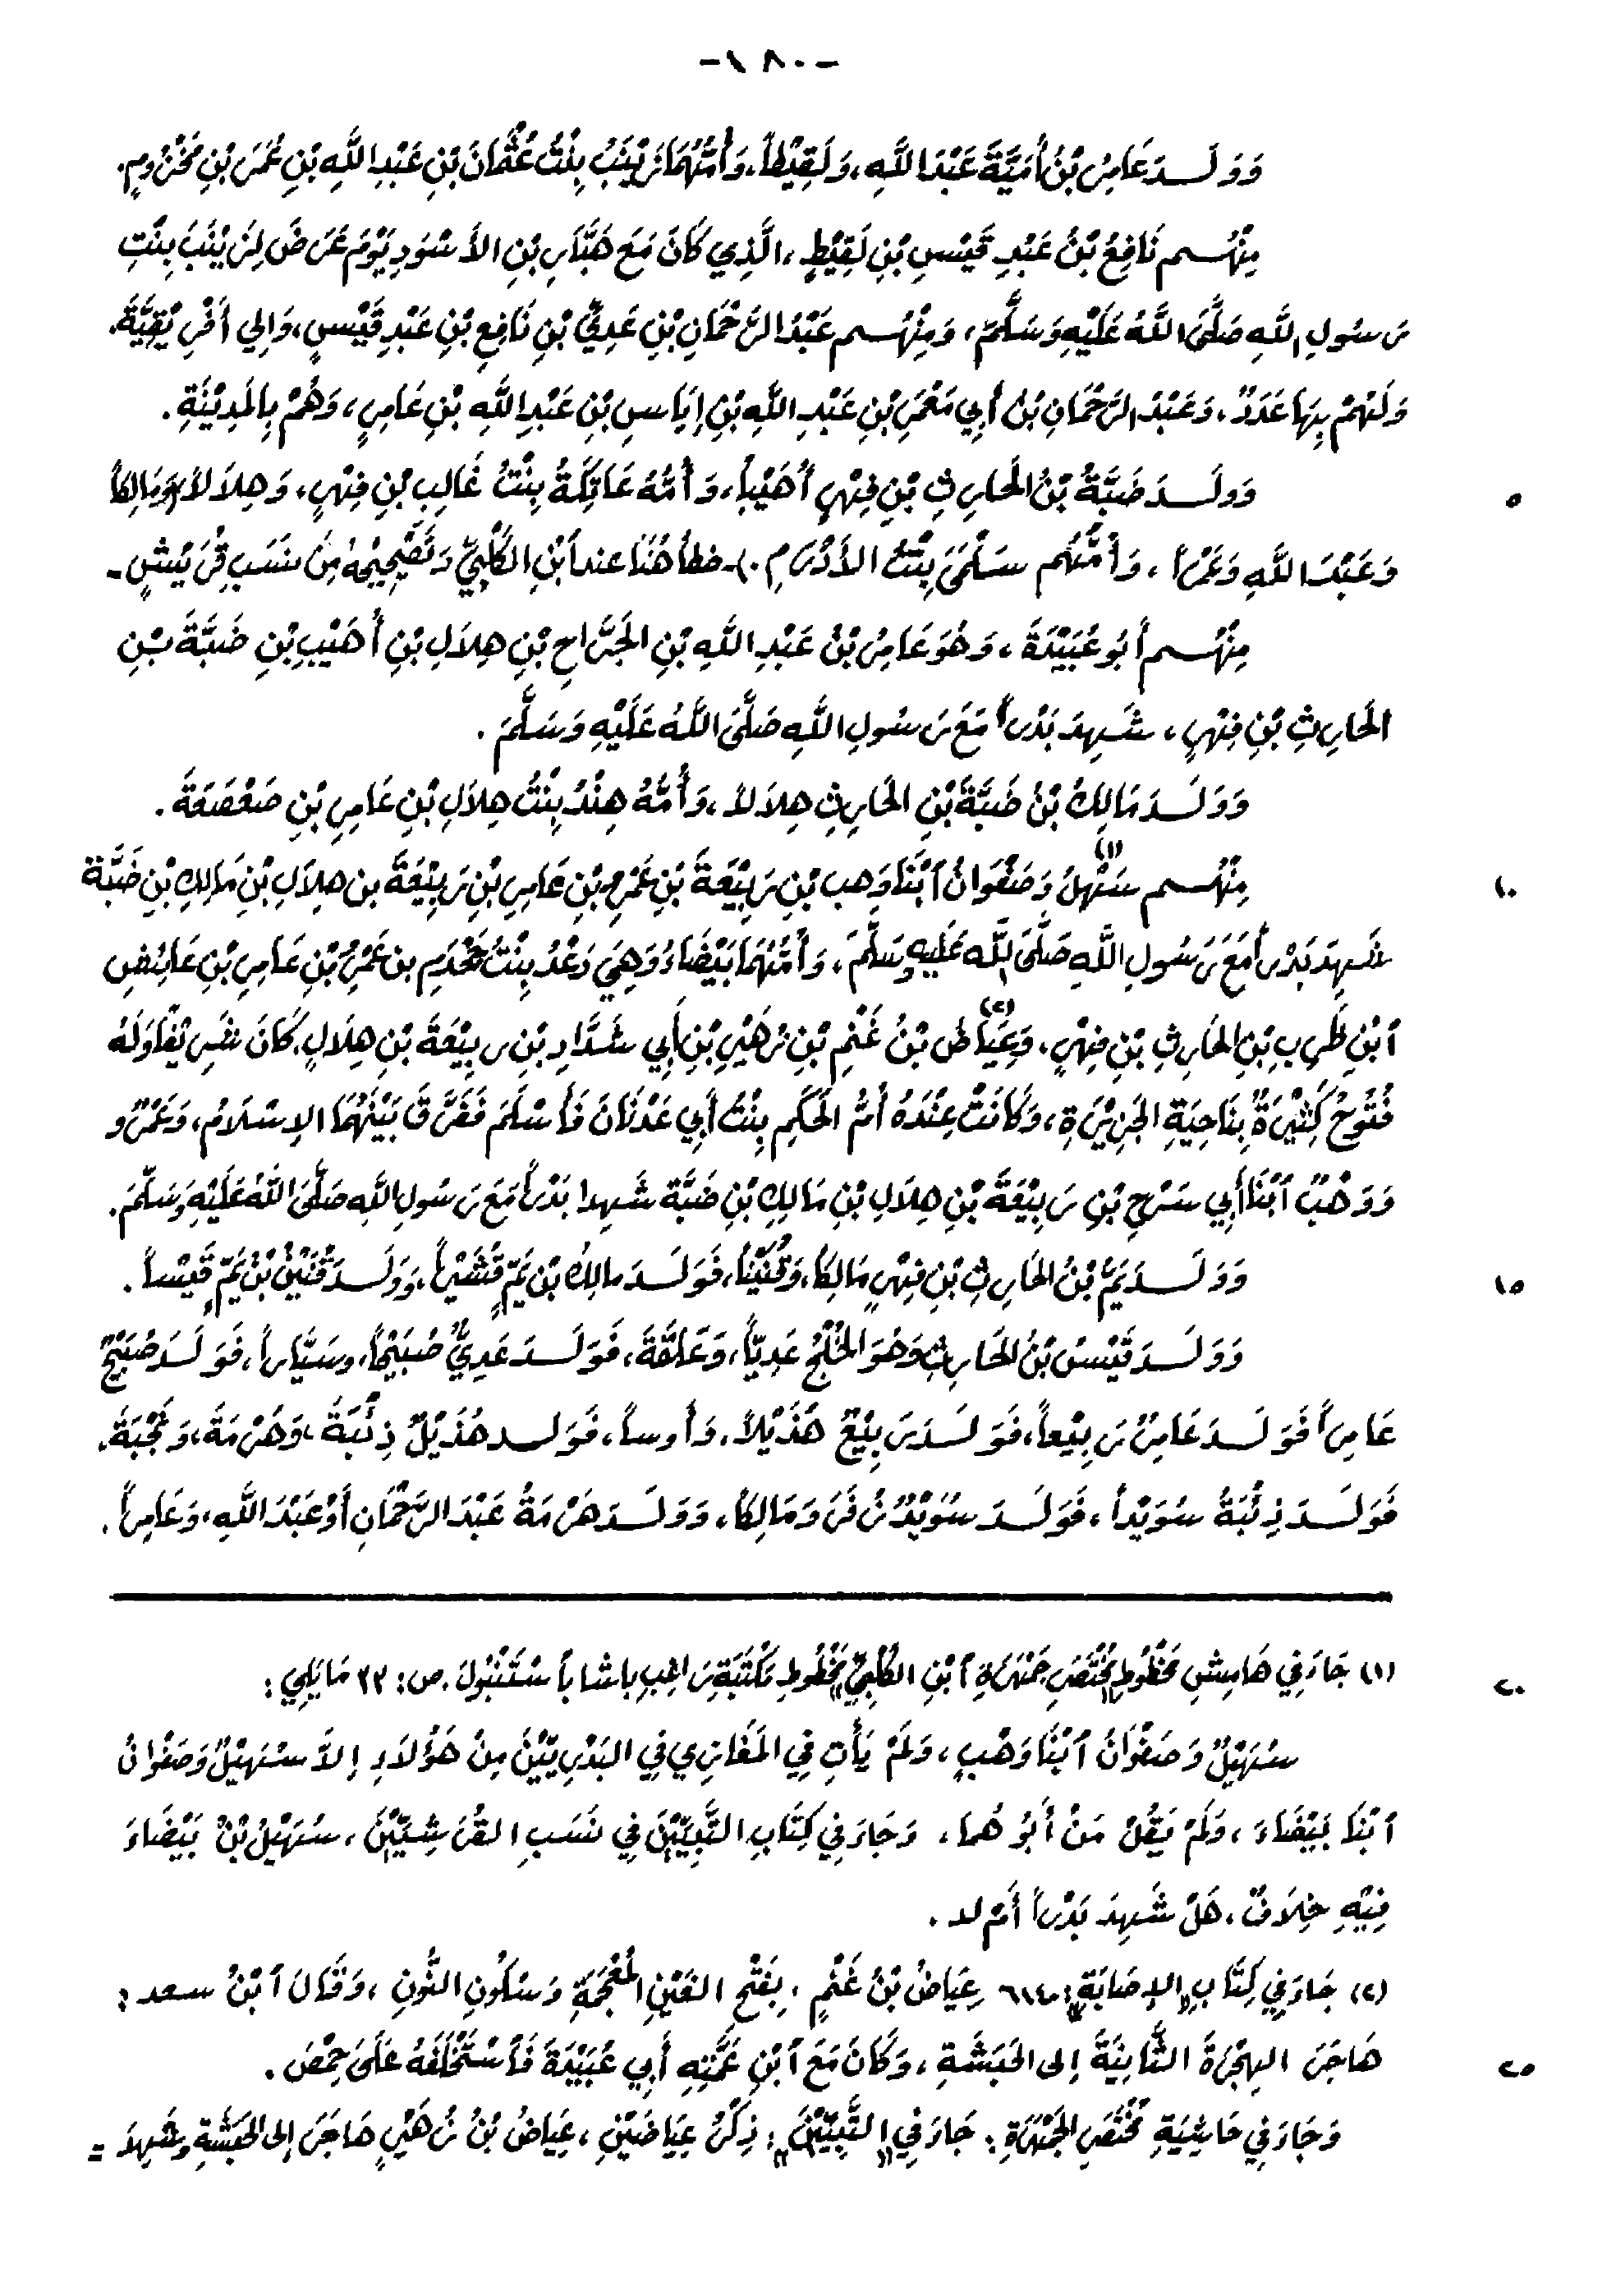 -١٨٠-
وَوَلَــدَ عَامِرُ بْنُ أُمَيَّةَ عَبْدَ اللَّهِ، وَلَقِيْطاً، وَأُمُّهُمَا زَيْنَبُ بِنْتُ عُثْمَانَ بْنِ عَبْدِ اللَّهِ بْنِ عُمَرَ بْنِ مَخْزُومٍ.
مِنْهُــم نَافِعُ بْنُ عَبْدِ قَيْسِ بْنِ لَقِيْطٍ، الَّذِي كَانَ مَعَ هَبَّارِ بْنِ الأَسْوَدِ يَوْمَ عَرَضَ لِزَيْنَبَ بِنْتِ
رَسُولِ اللَّهِ صَلَّى اللَّهُ عَلَيْهِ وَسَلَّمَ، وَمِنْهُــم عَبْدُ الرَّحْمَانِ بْنِ عَدِيِّ بْنِ نَافِعِ بْنِ عَبْدِ قَيْسٍ، وَالِي أَفْرِيْقِيَّةَ،
وَلَهُمْ بِهَا عَدَدٌ، وَعَبْدُ الرَّحْمَانِ بْنُ أَبِي مَعْمَرِ بْنِ عَبْدِ اللَّهِ بْنِ إِيَاسِ بْنِ عَبْدِ اللَّهِ بْنِ عَامِرٍ، وَهُمْ بِالمَدِيْنَةِ.
وَوَلَــدَ ضَبَّةُ بْنُ الحَارِثِ بْنِ فِهْرٍ أُهَيْباً، وَأُمُّهُ عَاتِكَةُ بِنْتُ غَالِبِ بْنِ فِهْرٍ، وَهِلاَلاً، وَمَالِكاً ٥
وَعَبْدَ اللَّهِ وَعَمْراً، وَأُمُّهُم سَلْمَى بِنْتُ الأَدْرَمِ.)- خطأ هُنَا عند ابْنِ الكَلْبِيِّ وَتَصْحِيْحُهُ مِنْ نَسَبِ قُرَيْشٍ -
مِنْهُــم أَبُو عُبَيْدَةَ، وَهُوَ عَامِرُ بْنُ عَبْدِ اللَّهِ بْنِ الجَرَّاحِ بْنِ هِلاَلِ بْنِ أُهَيْبِ بْنِ ضَبَّةَ بْنِ
الحَارِثِ بْنِ فِهْرٍ، شَهِدَ بَدْراً مَعَ رَسُولِ اللَّهِ صَلَّى اللَّهُ عَلَيْهِ وَسَلَّمَ.
وَوَلَــدَ مَالِكُ بْنُ ضَبَّةَ بْنِ الحَارِثِ هِلاَلاً، وَأُمُّهُ هِنْدُ بِنْتُ هِلاَلِ بْنِ عَامِرِ بْنِ صَعْصَعَةَ.
مِنْهُــم سَهْلُ (١) وَصَفْوَانُ ٱبْنَا وَهب بْنِ رَبِيْعَةَ بْنِ عَمْرِو بْنِ عَامِرِ بْنِ رَبِيْعَةَ بن هِلاَلِ بْنِ مَالِكِ بْنِ ضَبَّة ١٠
شَهِدَ بَدْراً مَعَ رَسُولِ اللَّهِ صَلَّى اللَّه عَلَيهِ وَسَلَّمَ، وَأُمُّهُمَا بَيْضَاءُ وَهِيَ دَعْدُ بِنْتُ جَحْدَمِ بن عَمْرِو بْنِ عَامِرِ بْنِ عَائِشِ
ٱبْنِ ظَرِبِ بْنِ الحَارِثِ بْنِ فِهْرٍ، وَعِيَاضُ (٢) بْنُ غَنْمِ بْنِ زُهَيْرِ بْنِ أَبِي شَدَّادِ بْنِ رَبِيْعَةَ بْنِ هِلاَلٍ، كَانَ شَرِيْفاً وَلَهُ
فُتُوحٌ كَثِيْرَةٌ بِنَاحِيَةِ الجَزِيْرَةِ، وَكَانَتْ عِنْدَهُ أُمُّ الحَكَمِ بِنْتُ أَبِي عَدْنَانَ فَأَسْلَمَ فَفَرَّقَ بَيْنَهُمَا الإِسْلاَمُ، وَعَمْرُو
وَوَهْبُ ٱبْنَا أَبِي سَرْحِ بْنِ رَبِيْعَةَ بْنِ هِلاَلِ بْنِ مَالِكِ بْنِ ضَبَّة شَهِدا بَدْراً مَعَ رَسُولِ اللَّهِ صَلَّى اللَّهُ عَلَيْهِ وَسَلَّمَ.
وَوَلَــدَ يَمُّ بْنُ الحَارِثِ بْنِ فِهْرٍ مَالِكاً، وَقُنَيْناً، فَوَلَــدَ مالِكُ بْن يَمٍّ قُشَيْراً، وَوَلَــدَ قُنَيْنُ بْنُ يَمٍّ قَيْساً. ١٥
وَوَلَــدَ قَيْسُ بْنُ الحَارِثِ وَهُوَ الخُلْجُ عَدِيّاً، وَعَلَقَةَ، فَوَلَــدَ عَدِيٌّ صُبَيْحاً، وسَيَّاراً، فَوَلَــدَ صُبَيْحٌ
عَامِراً فَوَلَــدَ عَامِرٌ رَبِيْعاً، فَوَلَــدَ رَبِيْعٌ هُذَيْلاً، وَأَوساً، فَوَلــد هُذَيْلٌ ذِئْبَةَ، وَهَرْمَةَ، وَنَجْبَةَ،
فَوَلَــدَ ذِئْبَةُ سُوَيْداً، فَوَلَــدَ سُوَيْدٌ زُفَرَ وَمَالِكاً، وَوَلَــدَ هَرْمَةُ عَبْدَ الرَّحْمَانِ أَوْ عَبْدَ اللَّهِ، وَعَامِراً.
(١) جَاءَ فِي هَامِشِ مَخْطُوطِ مُخْتَصَرِ جَمْهَرَةِ ٱبْنِ الكَلْبِيِّ مَخْطُوطِ مَكْتَبَةِ رَاغِبِ باشا بأَسْتَنْبُولَ. ص: ٢٣ مَا يَلِي: ٢٠
سُهَيْلٌ وَصَفْوَانُ ٱبْنَا وَهْبٍ، وَلَمْ يَأْتِ فِي المَغَازِي فِي البَدْرِيِّيْنَ مِنْ هَؤُلاَءِ إِلاَّ سُهَيْلٌ وَصَفْوَانُ
ٱبْنَا بَيْضَاءَ، وَلَمْ يَقُلْ مَنْ أَبُوهُما، وَجَاءَ فِي كِتَابِ التَّبِيِّيْنَ فِي نَسَبِ القُرَشِيِّيْنَ، سُهَيْلُ بْنُ بَيْضَاءَ
فِيْهِ خِلاَفٌ، هَلْ شَهِدَ بَدْراً أَمْ لا.
(٢) جَاءَ فِي كِتَابِ «الإِصَابَةِ»: ٦١٤٠ عِيَاضُ بْنُ غَنْمٍ، بِفَتْحِ الغَيْنِ المُعْجَمَةِ وَسُكُونِ النُّونِ، وَقَالَ ٱبْنُ سعد:
هَاجَرَ الهِجْرَةَ الثَّانِيَةَ إِلى الحَبَشَةِ، وَكَانَ مَعَ ٱبْنِ عَمَّتِهِ أَبِي عُبَيْدَةَ فَٱسْتَخْلَفَهُ عَلَى حِمْصَ. ٢٥
وَجَاءَ فِي حَاشِيَةِ مُخْتَصَرِ الجَمْهَرَةِ: جَاءَ فِي «التَّبِيِّيْنَ»: ذِكْرُ عِيَاضَيْنِ، عِيَاضُ بْنُ زُهَيْرٍ هَاجَرَ إِلى الحَبَشَةِ وشَهِدَ =